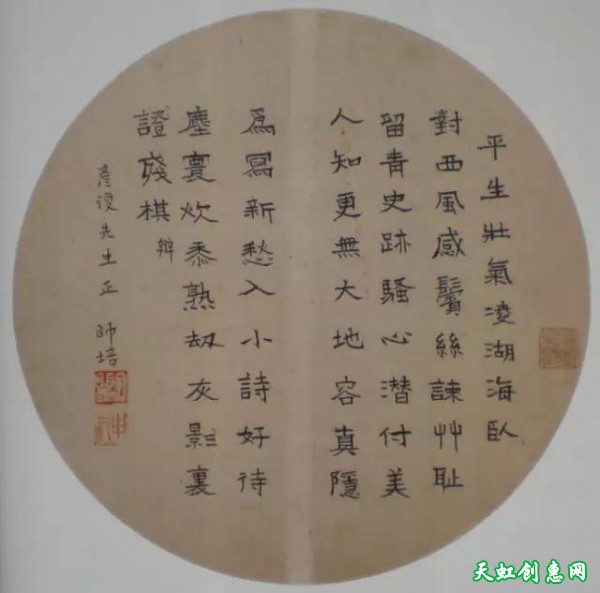 平生壯氣凌湖海臥
對西風感鬢絲諫艸耻
留青史跡騷心潛付美
人知更無大地容真隱
爲寫新愁入小詩好待
塵寰炊黍熟劫灰影裏
證殘棋辨
彥復先生正 師培
天虹创惠网